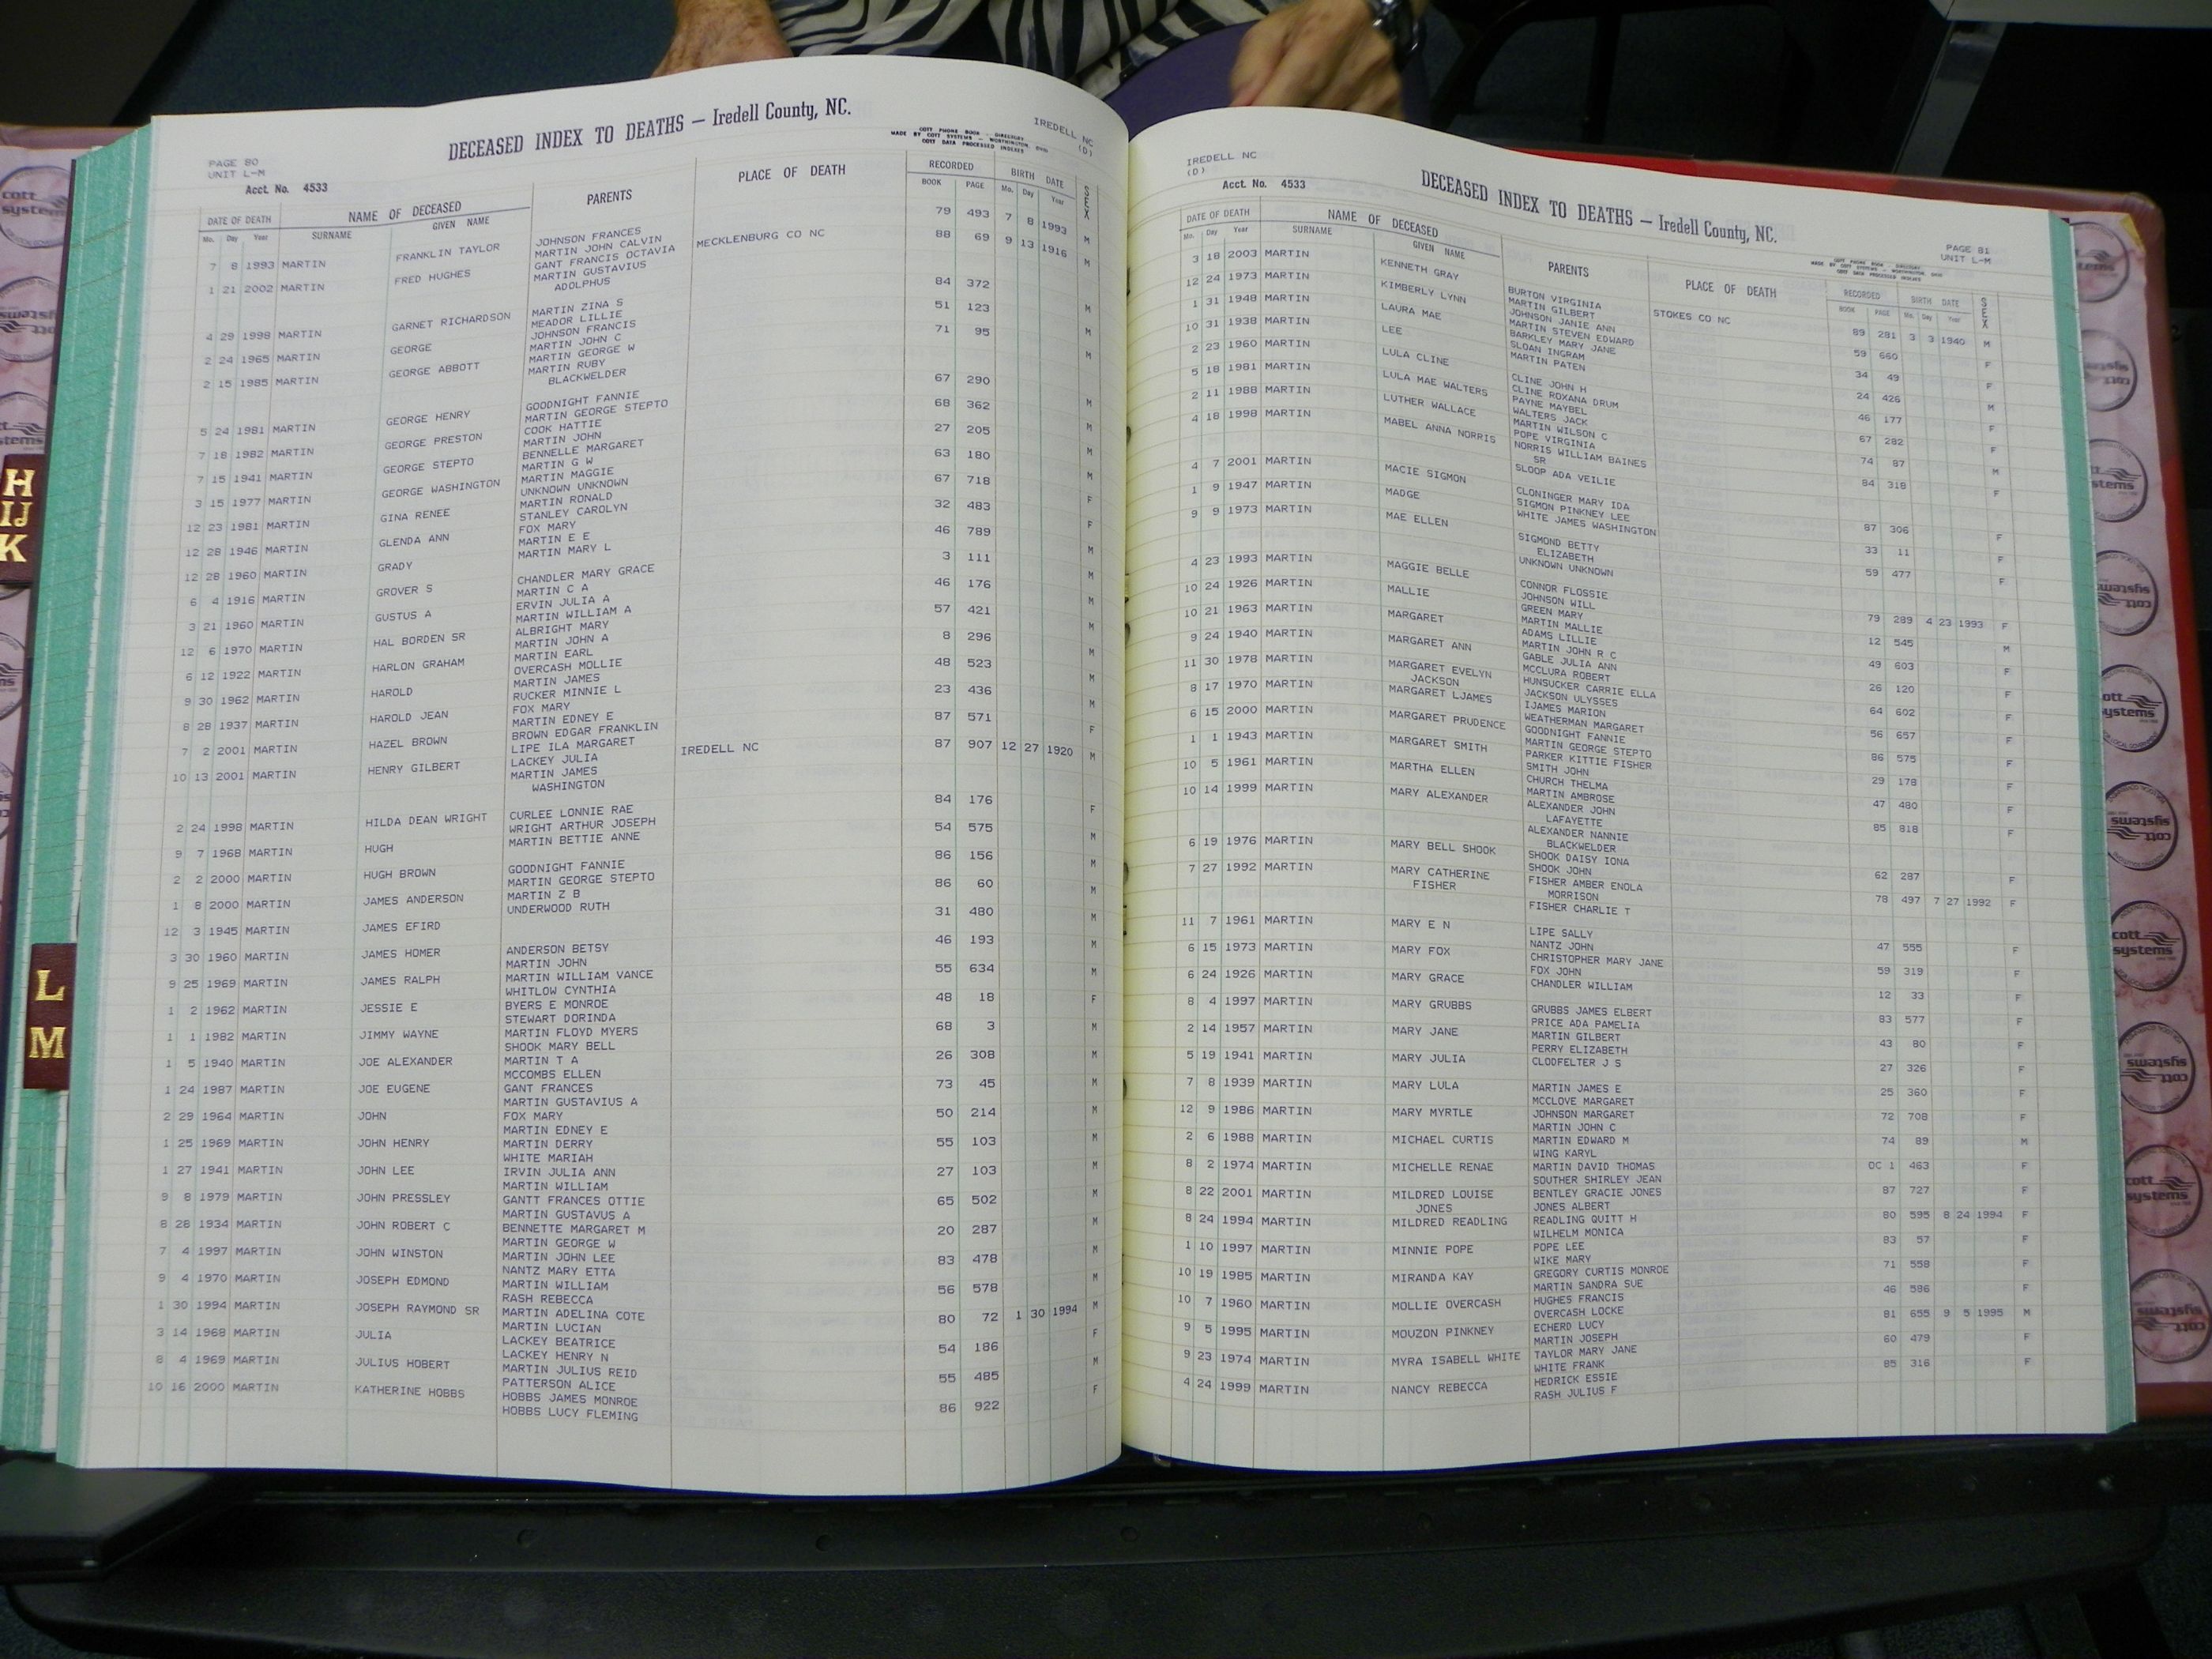 DECEASED INDEX TO DEATHS — Iredell County, NC.
IREDELL NC
(D)
COTT PHONE BOOK - DIRECTORY
MADE BY COTT SYSTEMS - WORTHINGTON, OHIO
COTT DATA PROCESSED INDEXES
PAGE 80
UNIT L-M
Acct. No. 4533
DATE OF DEATH NAME OF DECEASED PARENTS PLACE OF DEATH RECORDED BIRTH DATE SEX
Mo. Day Year SURNAME GIVEN NAME BOOK PAGE Mo. Day Year
7 8 1993 MARTIN FRANKLIN TAYLOR JOHNSON FRANCES 79 493 7 8 1993 M
MARTIN JOHN CALVIN
1 21 2002 MARTIN FRED HUGHES GANT FRANCIS OCTAVIA MECKLENBURG CO NC 88 69 9 13 1916 M
MARTIN GUSTAVIUS
ADOLPHUS
4 29 1998 MARTIN GARNET RICHARDSON MARTIN ZINA S 84 372 M
MEADOR LILLIE
2 24 1965 MARTIN GEORGE JOHNSON FRANCIS 51 123 M
MARTIN JOHN C
2 15 1985 MARTIN GEORGE ABBOTT MARTIN GEORGE W 71 95 M
MARTIN RUBY
BLACKWELDER
5 24 1981 MARTIN GEORGE HENRY GOODNIGHT FANNIE 67 290 M
MARTIN GEORGE STEPTO
7 18 1982 MARTIN GEORGE PRESTON COOK HATTIE 68 362 M
MARTIN JOHN
7 15 1941 MARTIN GEORGE STEPTO BENNELLE MARGARET 27 205 M
MARTIN G W
3 15 1977 MARTIN GEORGE WASHINGTON MARTIN MAGGIE 63 180 M
UNKNOWN UNKNOWN
12 23 1981 MARTIN GINA RENEE MARTIN RONALD 67 718 F
STANLEY CAROLYN
12 28 1946 MARTIN GLENDA ANN FOX MARY 32 483 F
MARTIN E E
12 28 1960 MARTIN GRADY MARTIN MARY L 46 789 M
6 4 1916 MARTIN GROVER S CHANDLER MARY GRACE 3 111 M
MARTIN C A
3 21 1960 MARTIN GUSTUS A ERVIN JULIA A 46 176 M
MARTIN WILLIAM A
12 6 1970 MARTIN HAL BORDEN SR ALBRIGHT MARY 57 421 M
MARTIN JOHN A
6 12 1922 MARTIN HARLON GRAHAM MARTIN EARL 8 296 M
OVERCASH MOLLIE
9 30 1962 MARTIN HAROLD MARTIN JAMES 48 523 M
RUCKER MINNIE L
8 28 1937 MARTIN HAROLD JEAN FOX MARY 23 436 M
MARTIN EDNEY E
7 2 2001 MARTIN HAZEL BROWN BROWN EDGAR FRANKLIN 87 571 F
LIPE ILA MARGARET
10 13 2001 MARTIN HENRY GILBERT LACKEY JULIA IREDELL NC 87 907 12 27 1920 M
MARTIN JAMES
WASHINGTON
2 24 1998 MARTIN HILDA DEAN WRIGHT CURLEE LONNIE RAE 84 176 F
WRIGHT ARTHUR JOSEPH
9 7 1968 MARTIN HUGH MARTIN BETTIE ANNE 54 575 M
2 2 2000 MARTIN HUGH BROWN GOODNIGHT FANNIE 86 156 M
MARTIN GEORGE STEPTO
1 8 2000 MARTIN JAMES ANDERSON MARTIN Z B 86 60 M
UNDERWOOD RUTH
12 3 1945 MARTIN JAMES EFIRD 31 480 M
3 30 1960 MARTIN JAMES HOMER ANDERSON BETSY 46 193 M
MARTIN JOHN
9 25 1969 MARTIN JAMES RALPH MARTIN WILLIAM VANCE 55 634 M
WHITLOW CYNTHIA
1 2 1962 MARTIN JESSIE E BYERS E MONROE 48 18 F
STEWART DORINDA
1 1 1982 MARTIN JIMMY WAYNE MARTIN FLOYD MYERS 68 3 M
SHOOK MARY BELL
1 5 1940 MARTIN JOE ALEXANDER MARTIN T A 26 308 M
MCCOMBS ELLEN
1 24 1987 MARTIN JOE EUGENE GANT FRANCES 73 45 M
MARTIN GUSTAVIUS A
2 29 1964 MARTIN JOHN FOX MARY 50 214 M
MARTIN EDNEY E
1 25 1969 MARTIN JOHN HENRY MARTIN DERRY 55 103 M
WHITE MARIAH
1 27 1941 MARTIN JOHN LEE IRVIN JULIA ANN 27 103 M
MARTIN WILLIAM
9 8 1979 MARTIN JOHN PRESSLEY GANTT FRANCES OTTIE 65 502 M
MARTIN GUSTAVUS A
8 28 1934 MARTIN JOHN ROBERT C BENNETTE MARGARET M 20 287 M
MARTIN GEORGE W
7 4 1997 MARTIN JOHN WINSTON MARTIN JOHN LEE 83 478 M
NANTZ MARY ETTA
9 4 1970 MARTIN JOSEPH EDMOND MARTIN WILLIAM 56 578 M
RASH REBECCA
1 30 1994 MARTIN JOSEPH RAYMOND SR MARTIN ADELINA COTE 80 72 1 30 1994 M
MARTIN LUCIAN
3 14 1968 MARTIN JULIA LACKEY BEATRICE 54 186 F
LACKEY HENRY N
8 4 1969 MARTIN JULIUS HOBERT MARTIN JULIUS REID 55 485 M
PATTERSON ALICE
10 16 2000 MARTIN KATHERINE HOBBS HOBBS JAMES MONROE 86 922 F
HOBBS LUCY FLEMING
IREDELL NC
(D)
Acct. No. 4533
DECEASED INDEX TO DEATHS — Iredell County, NC.
PAGE 81
UNIT L-M
MADE BY COTT SYSTEMS
DATE OF DEATH NAME OF DECEASED PARENTS PLACE OF DEATH RECORDED BIRTH DATE SEX
Mo. Day Year SURNAME GIVEN NAME BOOK PAGE Mo. Day Year
3 18 2003 MARTIN KENNETH GRAY BURTON VIRGINIA STOKES CO NC 89 281 3 3 1940 M
MARTIN GILBERT
12 24 1973 MARTIN KIMBERLY LYNN JOHNSON JANIE ANN 59 660 F
MARTIN STEVEN EDWARD
1 31 1948 MARTIN LAURA MAE BARKLEY MARY JANE 34 49 F
SLOAN INGRAM
10 31 1938 MARTIN LEE MARTIN PATEN 24 426 M
2 23 1960 MARTIN LULA CLINE CLINE JOHN H 46 177 F
CLINE ROXANA DRUM
5 18 1981 MARTIN LULA MAE WALTERS PAYNE MAYBEL 67 282 F
WALTERS JACK
2 11 1988 MARTIN LUTHER WALLACE MARTIN WILSON C 74 87 M
POPE VIRGINIA
4 18 1998 MARTIN MABEL ANNA NORRIS NORRIS WILLIAM BAINES 84 318 F
SR
SLOOP ADA VEILIE
4 7 2001 MARTIN MACIE SIGMON CLONINGER MARY IDA 87 306 F
SIGMON PINKNEY LEE
1 9 1947 MARTIN MADGE WHITE JAMES WASHINGTON 33 11 F
9 9 1973 MARTIN MAE ELLEN SIGMOND BETTY 59 477 F
ELIZABETH
UNKNOWN UNKNOWN
4 23 1993 MARTIN MAGGIE BELLE CONNOR FLOSSIE 79 289 4 23 1993 F
JOHNSON WILL
10 24 1926 MARTIN MALLIE GREEN MARY 12 545 M
MARTIN MALLIE
10 21 1963 MARTIN MARGARET ADAMS LILLIE 49 603 F
MARTIN JOHN R C
9 24 1940 MARTIN MARGARET ANN GABLE JULIA ANN 26 120 F
MCCLURA ROBERT
11 30 1978 MARTIN MARGARET EVELYN HUNSUCKER CARRIE ELLA 64 602 F
JACKSON JACKSON ULYSSES
8 17 1970 MARTIN MARGARET LJAMES IJAMES MARION 56 657 F
WEATHERMAN MARGARET
6 15 2000 MARTIN MARGARET PRUDENCE GOODNIGHT FANNIE 86 575 F
MARTIN GEORGE STEPTO
1 1 1943 MARTIN MARGARET SMITH PARKER KITTIE FISHER 29 178 F
SMITH JOHN
10 5 1961 MARTIN MARTHA ELLEN CHURCH THELMA 47 480 F
MARTIN AMBROSE
10 14 1999 MARTIN MARY ALEXANDER ALEXANDER JOHN 85 818 F
LAFAYETTE
ALEXANDER NANNIE
BLACKWELDER
6 19 1976 MARTIN MARY BELL SHOOK SHOOK DAISY IONA 62 287 F
SHOOK JOHN
7 27 1992 MARTIN MARY CATHERINE FISHER AMBER ENOLA 78 497 7 27 1992 F
FISHER MORRISON
FISHER CHARLIE T
11 7 1961 MARTIN MARY E N LIPE SALLY 47 555 F
NANTZ JOHN
6 15 1973 MARTIN MARY FOX CHRISTOPHER MARY JANE 59 319 F
FOX JOHN
6 24 1926 MARTIN MARY GRACE CHANDLER WILLIAM 12 33 F
8 4 1997 MARTIN MARY GRUBBS GRUBBS JAMES ELBERT 83 577 F
PRICE ADA PAMELIA
2 14 1957 MARTIN MARY JANE MARTIN GILBERT 43 80 F
PERRY ELIZABETH
5 19 1941 MARTIN MARY JULIA CLODFELTER J S 27 326 F
7 8 1939 MARTIN MARY LULA MARTIN JAMES E 25 360 F
MCCLOVE MARGARET
12 9 1986 MARTIN MARY MYRTLE JOHNSON MARGARET 72 708 F
MARTIN JOHN C
2 6 1988 MARTIN MICHAEL CURTIS MARTIN EDWARD M 74 89 M
WING KARYL
8 2 1974 MARTIN MICHELLE RENAE MARTIN DAVID THOMAS DC 1 463 F
SOUTHER SHIRLEY JEAN
8 22 2001 MARTIN MILDRED LOUISE BENTLEY GRACIE JONES 87 727 F
JONES JONES ALBERT
8 24 1994 MARTIN MILDRED READLING READLING QUITT H 80 595 8 24 1994 F
WILHELM MONICA
1 10 1997 MARTIN MINNIE POPE POPE LEE 83 57 F
WIKE MARY
10 19 1985 MARTIN MIRANDA KAY GREGORY CURTIS MONROE 71 558 F
MARTIN SANDRA SUE
10 7 1960 MARTIN MOLLIE OVERCASH HUGHES FRANCIS 46 596 F
OVERCASH LOCKE
9 5 1995 MARTIN MOUZON PINKNEY ECHERD LUCY 81 655 9 5 1995 M
MARTIN JOSEPH
9 23 1974 MARTIN MYRA ISABELL WHITE TAYLOR MARY JANE 60 479 F
WHITE FRANK
4 24 1999 MARTIN NANCY REBECCA HEDRICK ESSIE 85 316 F
RASH JULIUS F
H
IJ
K
L
M
cott
systems